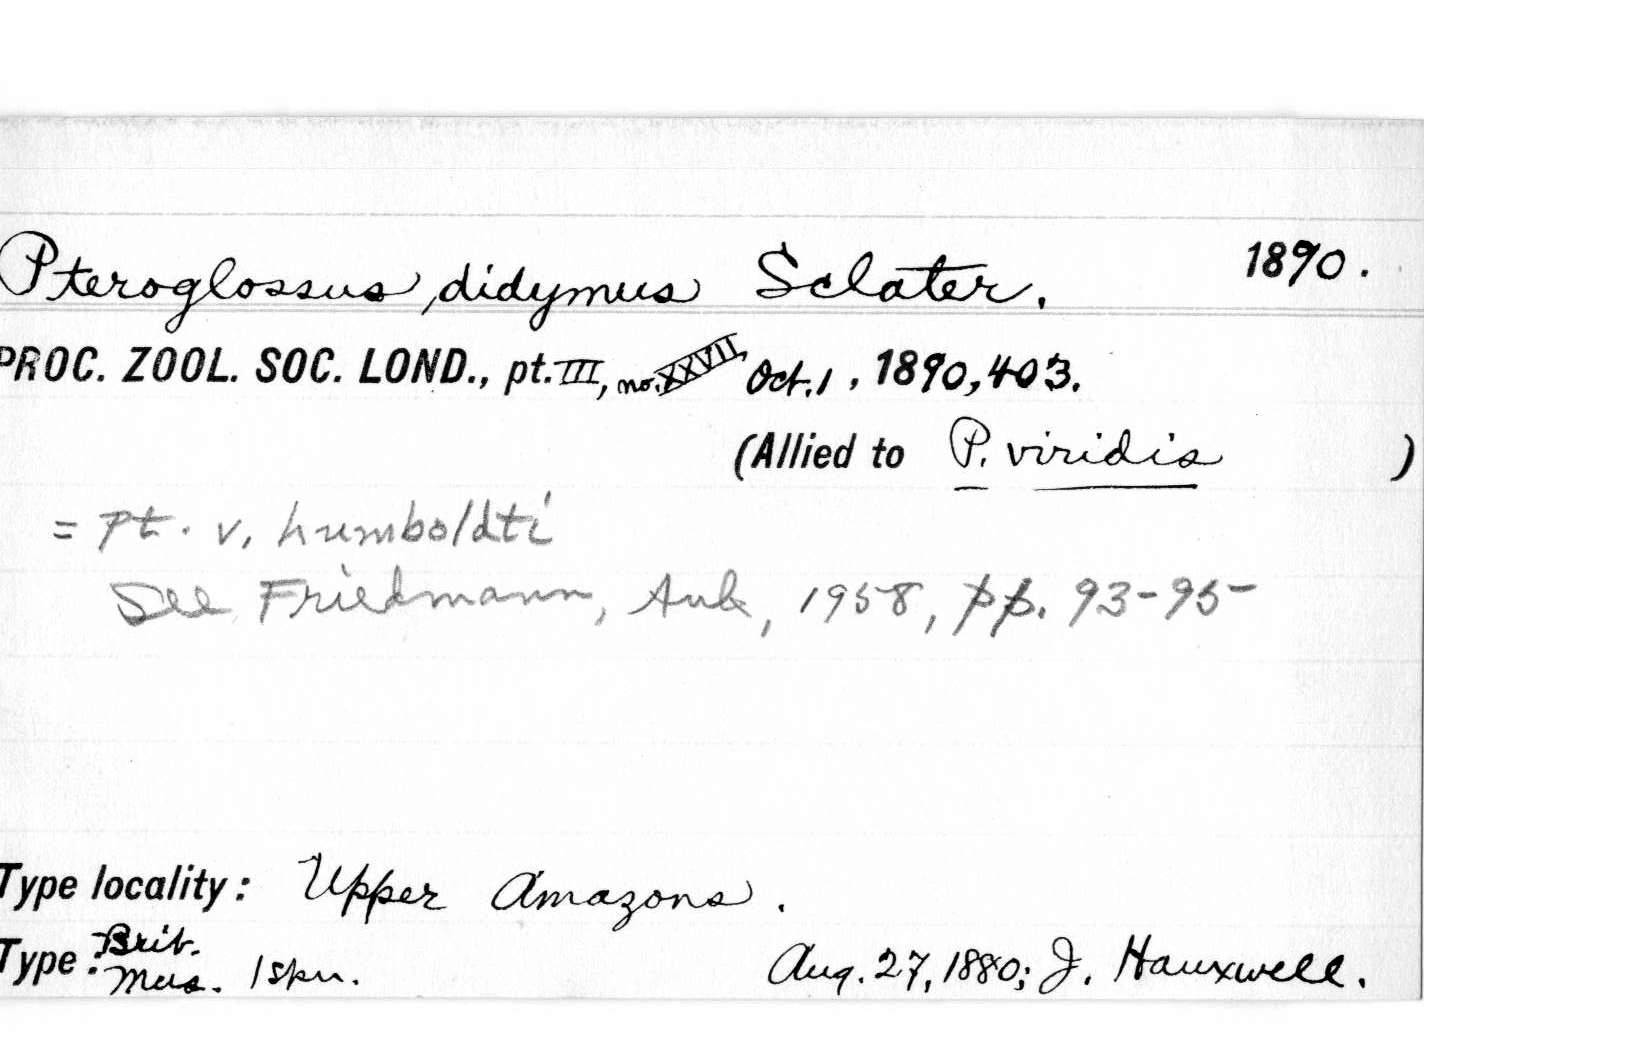 Pteroglossus didymus Sclater. 1890.
PROC. ZOOL. SOC. LOND., pt. III, no. XXVII, Oct. 1, 1890, 403.
(Allied to P. viridis )
= Pt. v. humboldti
See Friedmann, Auk, 1958, pp. 93-95
Type locality: Upper Amazons.
Type: Brit. Mus. 1 skn. Aug. 27, 1880; J. Hauxwell.